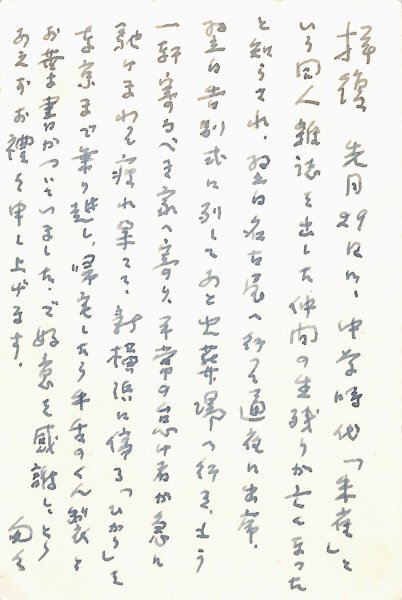 拝復 先月29日に、中学時代「朱雀」と
いう同人雑誌を出した仲間の生残りが亡くなった
と知らされ、翌日名古屋へ行って通夜に出席、
翌日告別式に列してあと火葬場へ行き、もう
一軒寄るべき家へ寄り、平常の怠け者が急に
馳けまわる疲れ果てて、新横浜に停る「ひかり」を
東京まで乗り越し、帰宅したら千吉のくん製と
お葉書がついていました。ご好意を感謝しとり
あえずお礼を申し上げます。